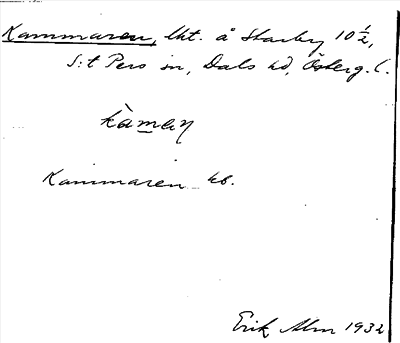 Kammaren, lht. å Starby 10 ½,
S:t Pers sn, Dals hd, Österg. l.
kàmaṉ
Kammaren kb.
Erik Alm 1932